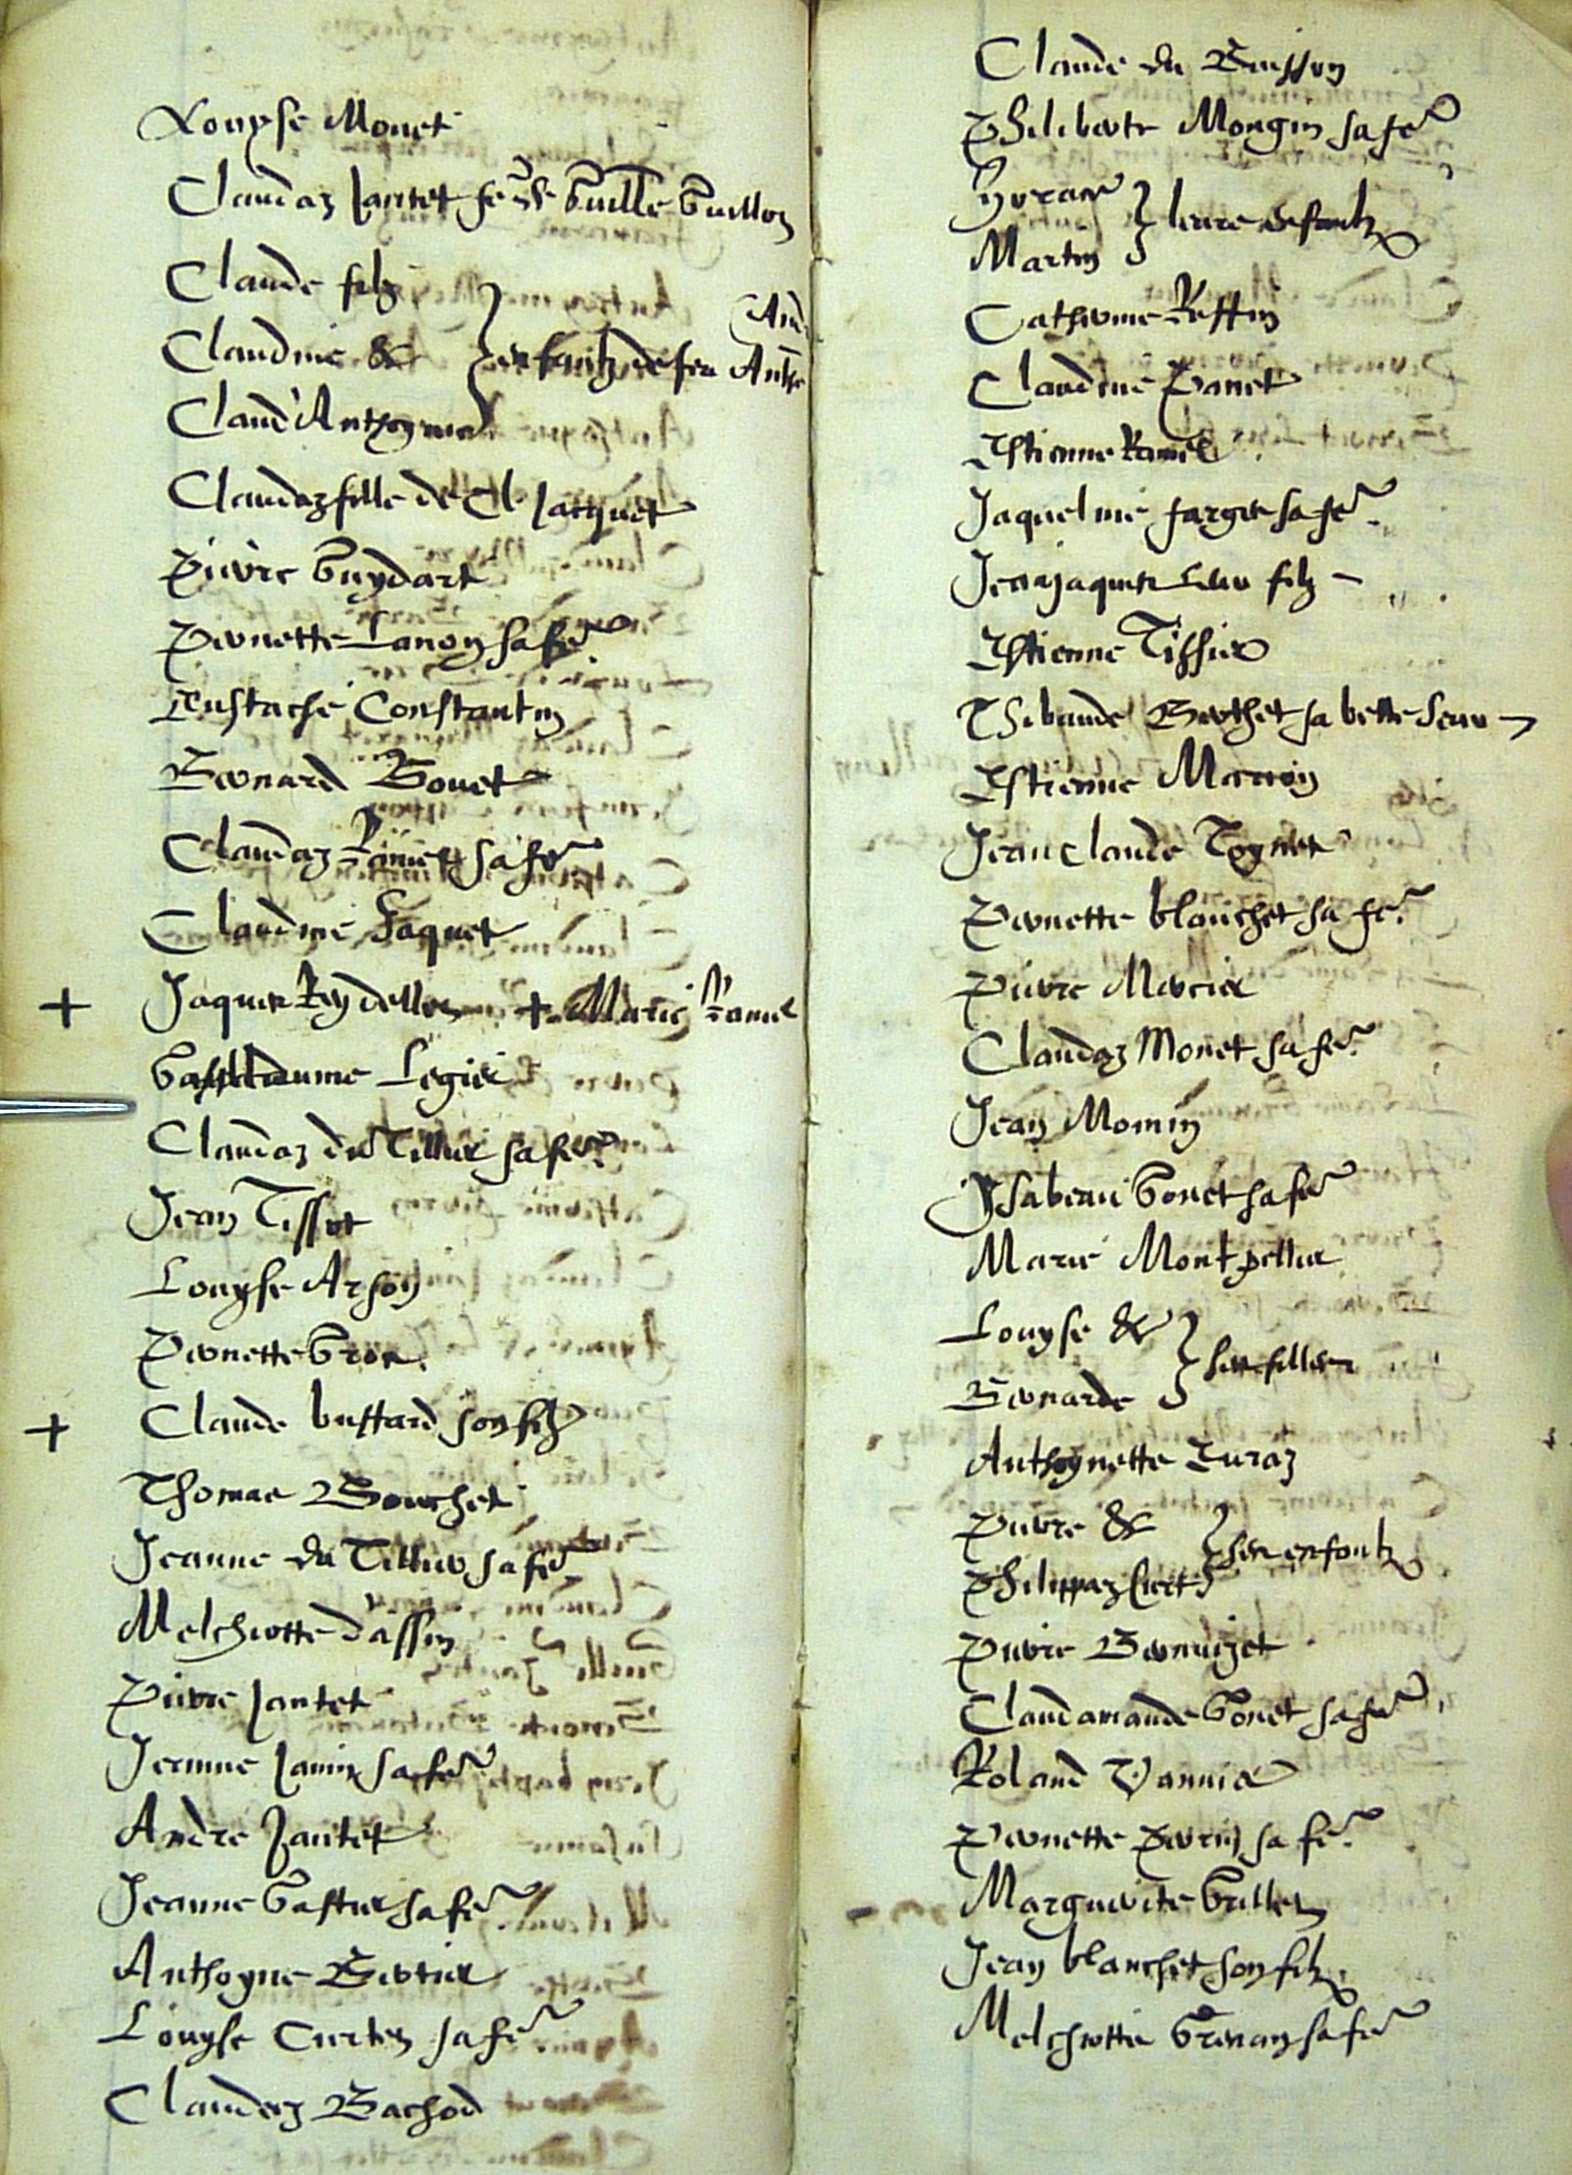 Louyse Monet
Claudaz Jantet fe de Guille Guillon
Claude filz
Claudine &
enfantz de feu
Claud'Anthoyne
Claudaz fille de Cl. Jacquet
Pierre Guydart
Pernette Lanoy sa fe
Eustache Constantin
Bernard Bouet
Claudaz Ramel sa fe
Claudine Jaquet
+ Jaques Reydellet + Marie Ramel
Legier
Claudaz du Tillier sa fe
Jean Tissot
Louyse Arson
Pernette Gros
+ Claude bustard son filz
Thomas Bouchet
Jeanne du Tillier sa fe
Melchiotte d'assin
Pierre Jantet
sa fe
Andre Jantet
Jeanne Gastier sa fe
Anthoyne Bertier
Louyse Curtet sa fe
Claudaz Bachod
Claude du Buisson
Philiberte Mongin sa fe
leurs enfantz
Martin
Catherine Ruffin
Claudine Panet
Estienne Ramel
Jaqueline farge sa fe
Jean Jaques leur filz
Estienne Tissier
Thibaude Berthet sa belle seur
Estienne
Jean Claude
Pernette blanchet sa fe
Pierre Mercier
Claudaz Monet sa fe
Jean Momin
Ysabeau Gonet sa fe
Marie Montpellier
Louyse &
ses filles
Bernarde
Anthoynette Curaz
Pierre &
ses enfantz
Philippaz
Pierre
Gonet sa fe
Roland Vannier
Pernette Perrin sa fe
Marguerite Grillet
Jean blanchet son filz
Melchiotte sa fe